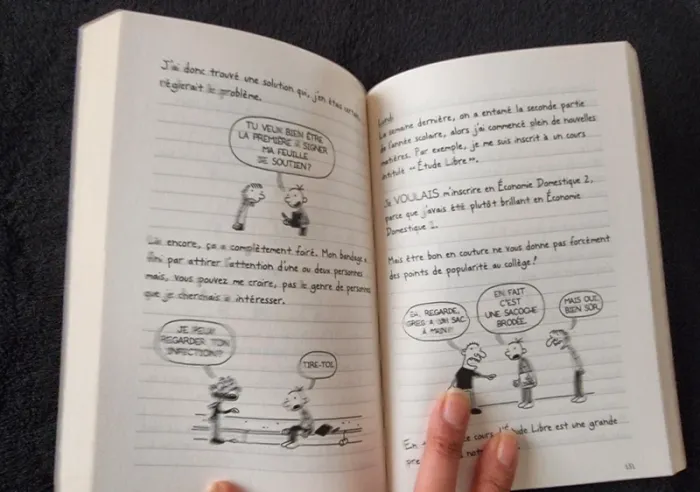 J'ai donc trouvé une solution qui, j'en étais certain,
règlerait le problème.
TU VEUX BIEN ÊTRE
LA PREMIÈRE À SIGNER
MA FEUILLE
DE SOUTIEN?
Là encore, ça a complètement foiré. Mon bandage a
fini par attirer l'attention d'une ou deux personnes
mais, vous pouvez me croire, pas le genre de personnes
que je cherchais à intéresser.
JE PEUX
REGARDER TON
INFECTION?
TIRE-TOI.
Lundi
La semaine dernière, on a entamé la seconde partie
de l'année scolaire, alors j'ai commencé plein de nouvelles
matières. Par exemple, je me suis inscrit à un cours
intitulé « Étude Libre ».
Je VOULAIS m'inscrire en Économie Domestique 2,
parce que j'avais été plutôt brillant en Économie
Domestique 1.
Mais être bon en couture ne vous donne pas forcément
des points de popularité au collège!
EH, REGARDE,
GREG A UN SAC
À MAIN!!
EN FAIT
C'EST
UNE SACOCHE
BRODÉE.
MAIS OUI,
BIEN SÛR.
En cours d'Étude Libre est une grande
pre not
131